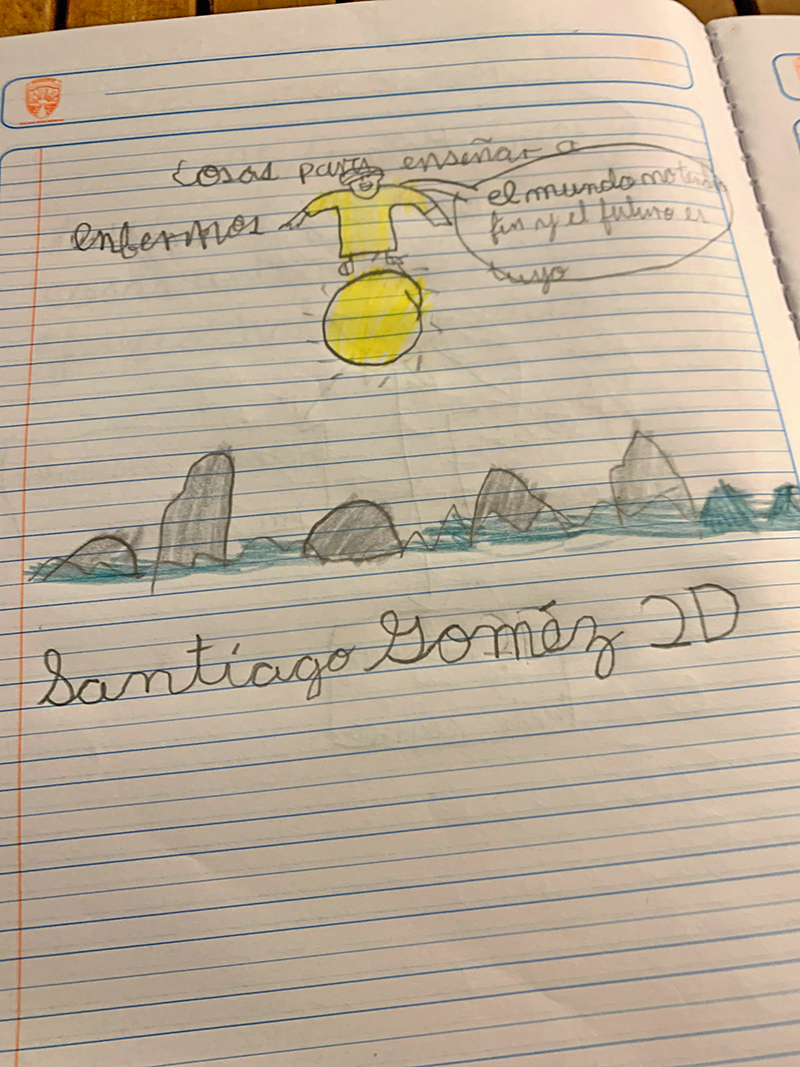 Cosas para enseñar a
enfermos
el mundo no tendra
fin y el futuro es
tuyo
Santiago Goméz 2D